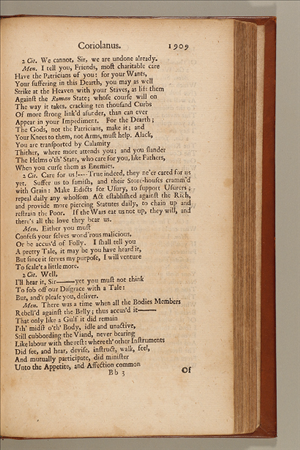 Coriolanus. 1909
2 Cit. We cannot, Sir, we are undone already.
Men. I tell you, Friends, moſt charitable care
Have the Patricians of you: for your Wants,
Your ſuffering in this Dearth, you may as well
Strike at the Heaven with your Staves, as lift them
Againſt the Roman State; whoſe courſe will on
The way it takes, cracking ten thouſand Curbs
Of more ſtrong link'd aſunder, than can ever
Appear in your Impediment. For the Dearth;
The Gods, not the Patricians, make it; and
Your Knees to them, not Arms, muſt help. Alack,
You are tranſported by Calamity
Thither, where more attends you; and you ſlander
The Helms o'th' State, who care for you, like Fathers,
When you curſe them as Enemies.
2 Cit. Care for us!--- True indeed, they ne'er cared for us
yet. Suffer us to famiſh, and their Store-houſes cramm'd
with Grain: Make Edicts for Uſury, to ſupport Uſurers;
repeal daily any wholſom Act eſtabliſhed againſt the Rich,
and provide more piercing Statutes daily, to chain up and
reſtrain the Poor. If the Wars eat us not up, they will, and
there's all the love they bear us.
Men. Either you muſt
Confeſs your ſelves wond'rous malicious,
Or be accus'd of Folly. I ſhall tell you
A pretty Tale, it may be you have heard it,
But ſince it ſerves my purpoſe, I will venture
To ſcale't a little more.
2 Cit. Well,
I'll hear it, Sir——yet you muſt not think
To fob off our Diſgrace with a Tale:
But, and't pleaſe you, deliver.
Men. There was a time when all the Bodies Members
Rebell'd againſt the Belly; thus accus'd it——
That only like a Gulf it did remain
I'th' midſt o'th' Body, idle and unactive,
Still cubboording the Viand, never bearing
Like labour with the reſt: where th' other Inſtruments
Did ſee, and hear, deviſe, inſtruct, walk, feel,
And mutually participate, did miniſter
Unto the Appetite, and Affection common
Bb 3 Of